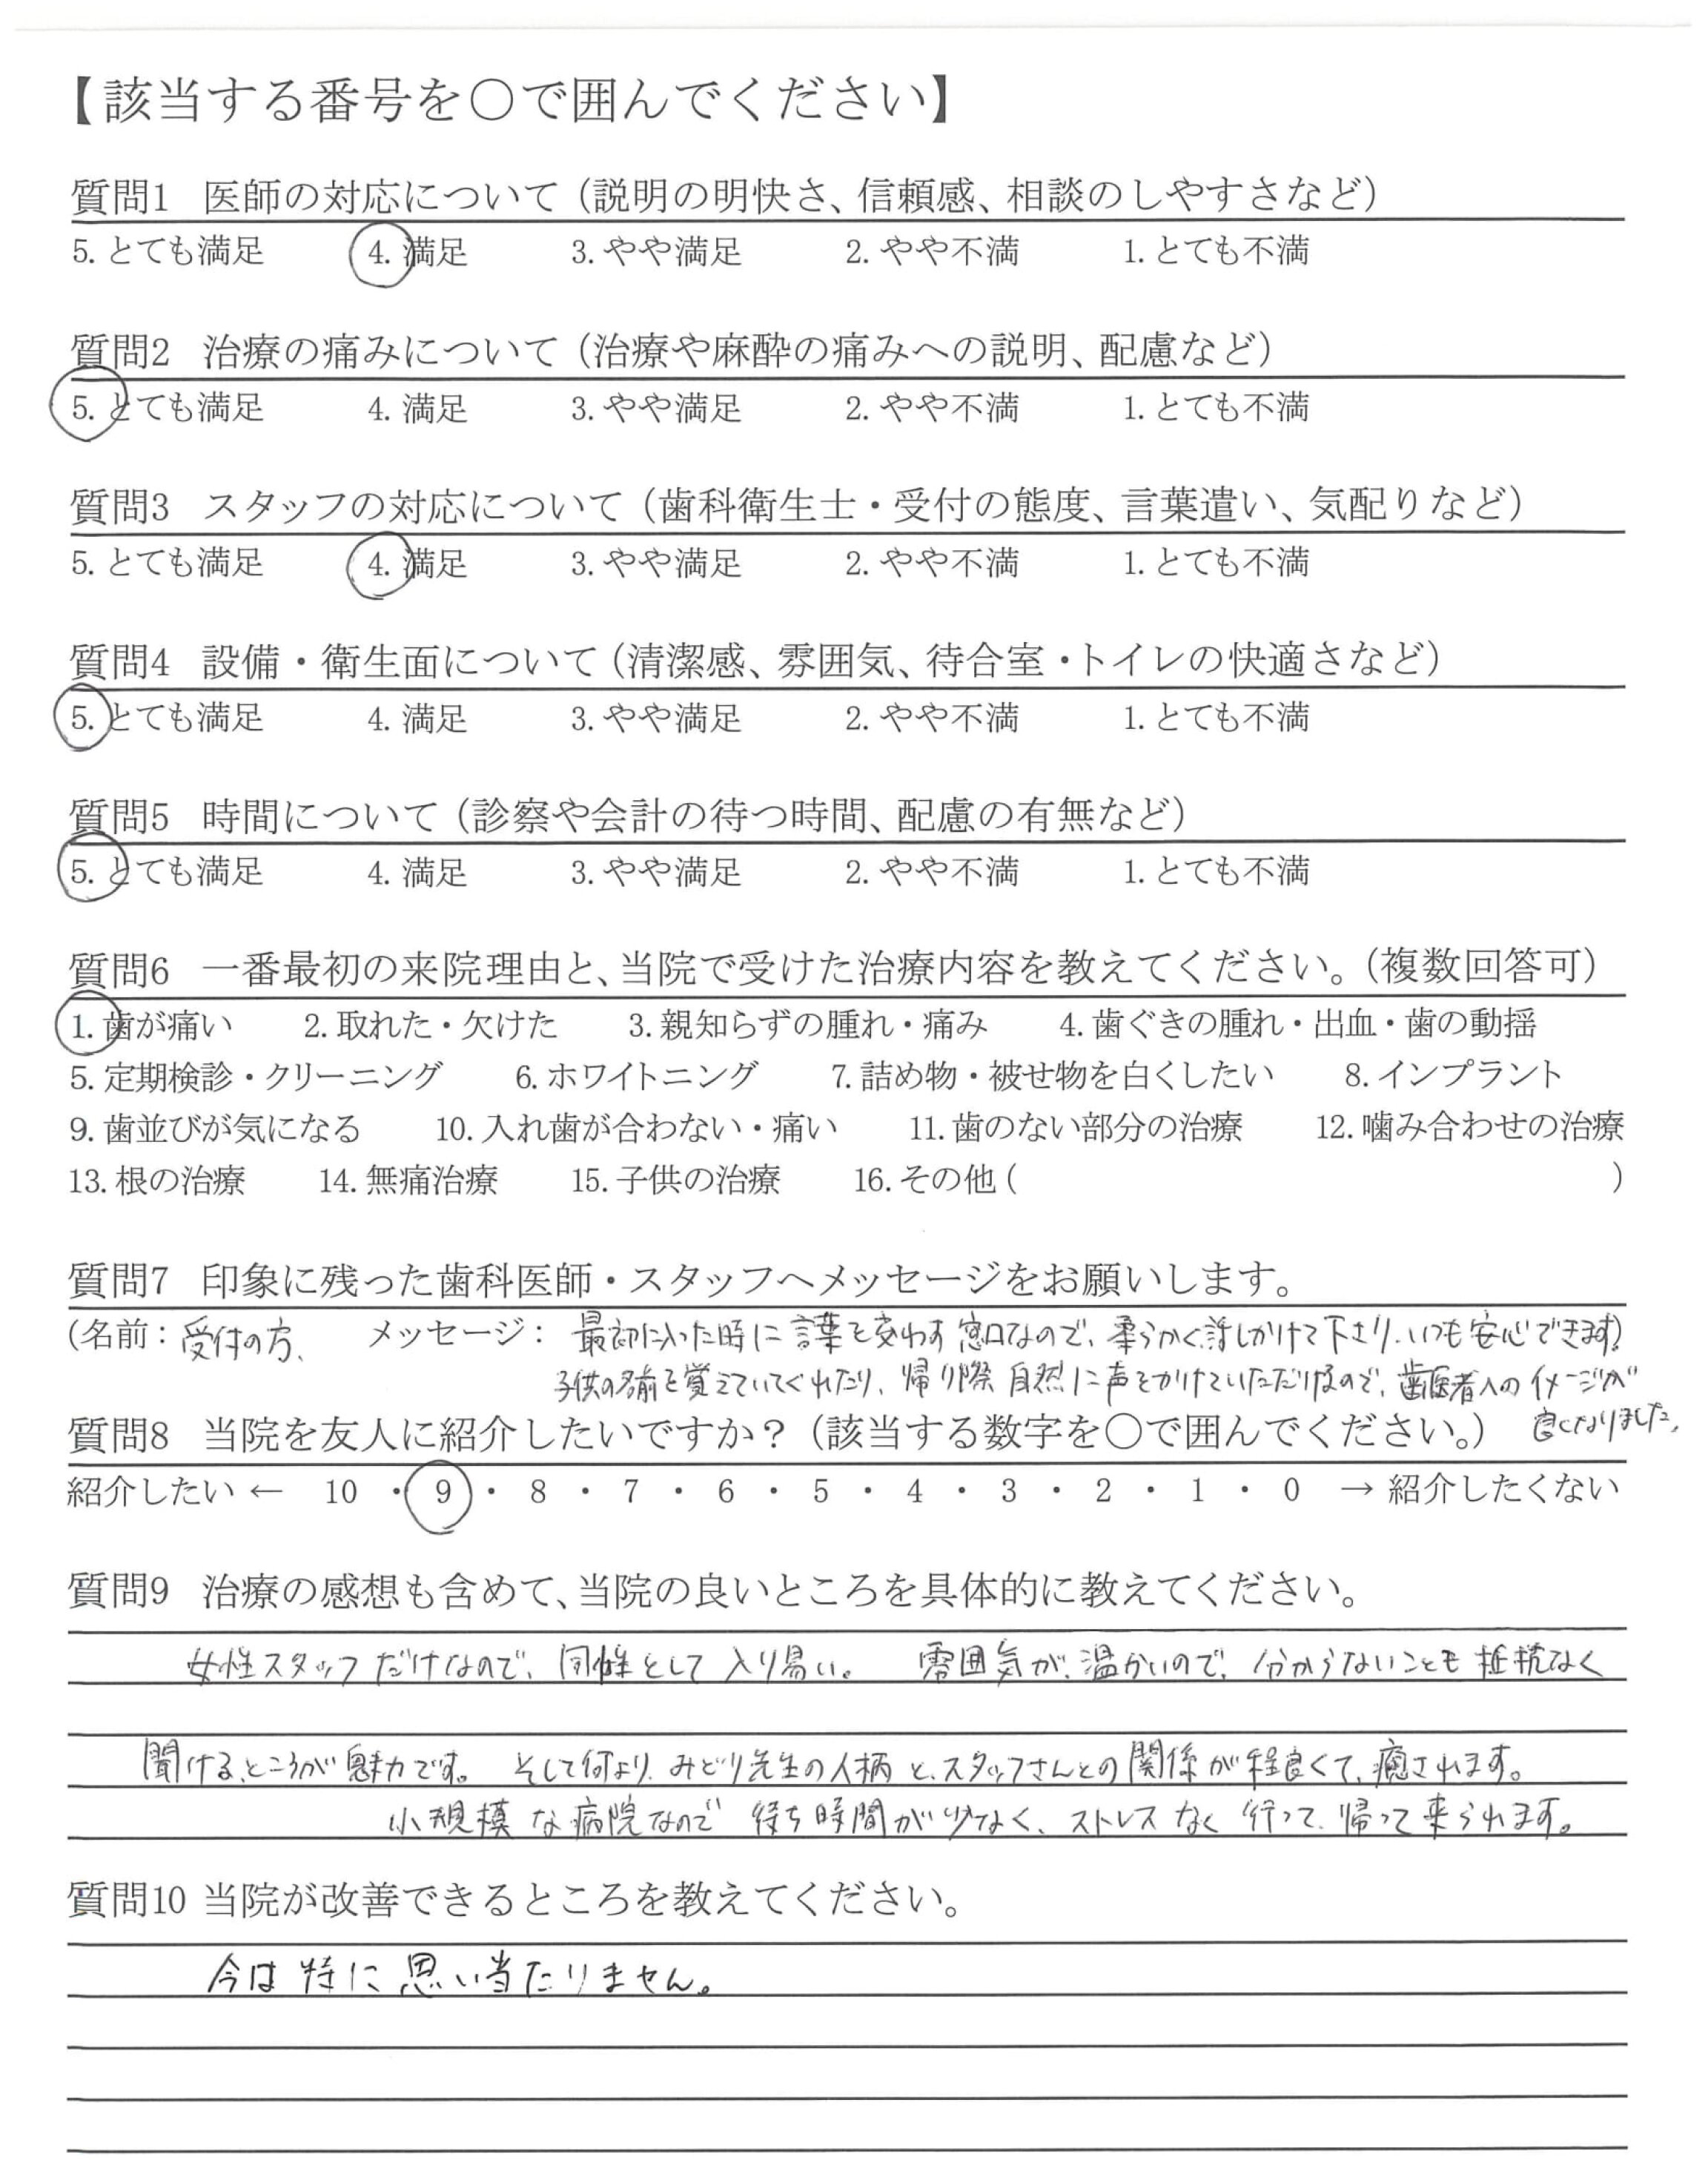 【該当する番号を〇で囲んでください】
質問1 医師の対応について（説明の明快さ、信頼感、相談のしやすさなど）
5. とても満足 4. 満足 3. やや満足 2. やや不満 1. とても不満
質問2 治療の痛みについて（治療や麻酔の痛みへの説明、配慮など）
5. とても満足 4. 満足 3. やや満足 2. やや不満 1. とても不満
質問3 スタッフの対応について（歯科衛生士・受付の態度、言葉遣い、気配りなど）
5. とても満足 4. 満足 3. やや満足 2. やや不満 1. とても不満
質問4 設備・衛生面について（清潔感、雰囲気、待合室・トイレの快適さなど）
5. とても満足 4. 満足 3. やや満足 2. やや不満 1. とても不満
質問5 時間について（診察や会計の待つ時間、配慮の有無など）
5. とても満足 4. 満足 3. やや満足 2. やや不満 1. とても不満
質問6 一番最初の来院理由と、当院で受けた治療内容を教えてください。（複数回答可）
1. 歯が痛い 2. 取れた・欠けた 3. 親知らずの腫れ・痛み 4. 歯ぐきの腫れ・出血・歯の動揺
5. 定期検診・クリーニング 6. ホワイトニング 7. 詰め物・被せ物を白くしたい 8. インプラント
9. 歯並びが気になる 10. 入れ歯が合わない・痛い 11. 歯のない部分の治療 12. 噛み合わせの治療
13. 根の治療 14. 無痛治療 15. 子供の治療 16. その他 ( )
質問7 印象に残った歯科医師・スタッフへメッセージをお願いします。
(名前：受付の方、 メッセージ： 最初に入った時に言葉を交わす窓口なので、柔らかく話しかけて下さり、いつも安心できます)
子供の名前を覚えていてくれたり、帰り際自然に声をかけていただけるので、歯医者への イメージが
良くなりました。
質問8 当院を友人に紹介したいですか？（該当する数字を〇で囲んでください。）
紹介したい ← 10 ・ 9 ・ 8 ・ 7 ・ 6 ・ 5 ・ 4 ・ 3 ・ 2 ・ 1 ・ 0 → 紹介したくない
質問9 治療の感想も含めて、当院の良いところを具体的に教えてください。
女性スタッフだけなので、同性として入り易い。 雰囲気が、温かいので、分からないことも抵抗なく
聞けるところが魅力です。 そして何より、みどり先生の人柄と、スタッフさんとの関係が程良くて、癒されます。
小規模な病院なので 待ち時間が少なく、ストレスなく 行って、帰って来られます。
質問10 当院が改善できるところを教えてください。
今は特に思い当たりません。